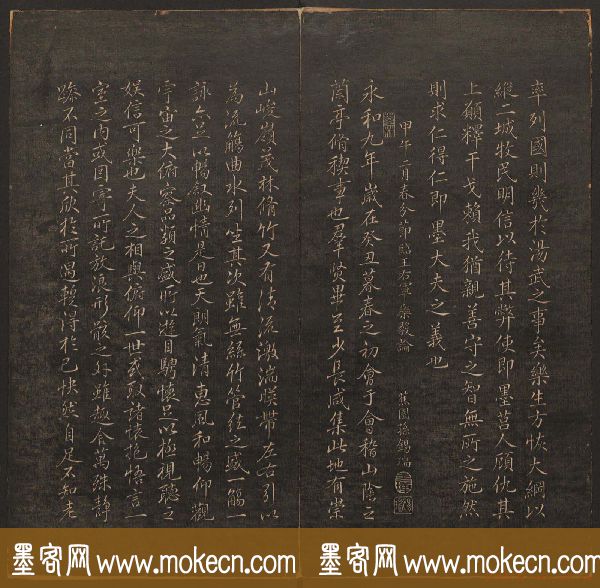 率列國則幾於湯武之事矣樂生方恢大綱以
縱二城牧民明信以待其弊使即墨莒人顧仇其
上願釋干戈賴我猶親善守之智無所之施然
則求仁得仁即墨大夫之義也
甲午二月春分節臨王右軍樂毅論
孫錫瑞
永和九年歲在癸丑暮春之初會于會稽山陰之
蘭亭脩稧事也羣賢畢至少長咸集此地有崇
山峻嶺茂林脩竹又有清流激湍暎帶左右引以
為流觴曲水列坐其次雖無絲竹管絃之盛一觴一
詠亦足以暢叙幽情是日也天朗氣清惠風和暢仰觀
宇宙之大俯察品類之盛所以遊目騁懷足以極視聽之
娛信可樂也夫人之相與俯仰一世或取諸懷抱悟言一
室之內或因寄所託放浪形骸之外雖趣舍萬殊靜
躁不同當其欣於所遇輙得於己快然自足不知老
墨客网 www.mokecn.com 墨客网 www.mokecn.com